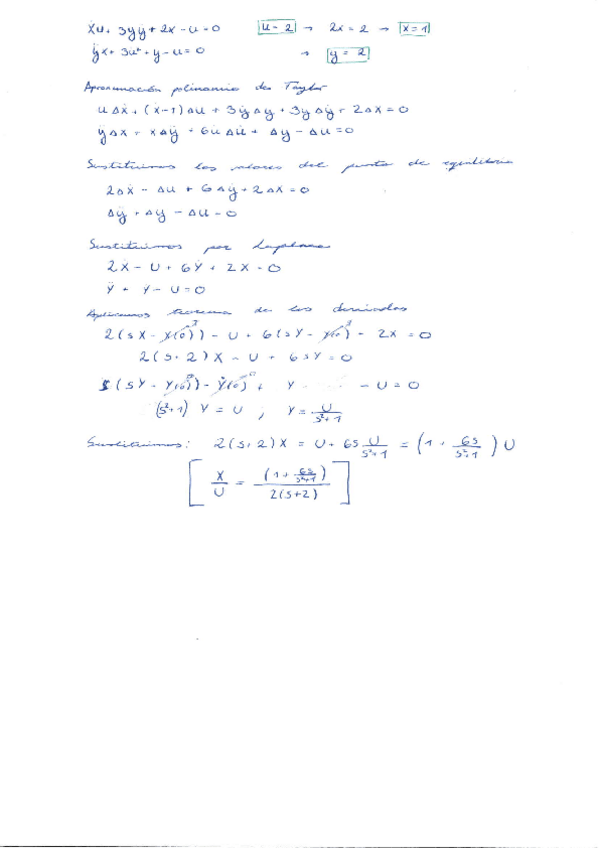 ẋu + 3yẏ + 2x - u = 0 u = 2 → 2x = 2 → x = 1
ÿx + 3u̇² + y - u = 0 → y = 2
Aproximación polinomio de Taylor
uΔẋ + (ẋ-1)Δu + 3ẏΔy + 3yΔẏ + 2Δx = 0
ÿΔx + xΔÿ + 6u̇Δu̇ + Δy - Δu = 0
Sustituimos los valores del punto de equilibrio
2Δẋ - Δu + 6Δẏ + 2Δx = 0
Δÿ + Δy - Δu = 0
Sustituimos por Laplace
2Ẋ - U + 6Ẏ + 2X = 0
Ÿ + Y - U = 0
Aplicamos teorema de las derivadas
2(sX - X(0)) - U + 6(sY - Y(0)) - 2X = 0
2(s+2)X - U + 6sY = 0
s(sY - Y(0)) - Ẏ(0) + Y - U = 0
(s²+1) Y = U , Y = U/(s²+1)
Sustituimos: 2(s+2)X = U + 6s U/(s²+1) = (1 + 6s/(s²+1)) U
[ X/U = (1 + 6s/(s²+1)) / 2(s+2) ]